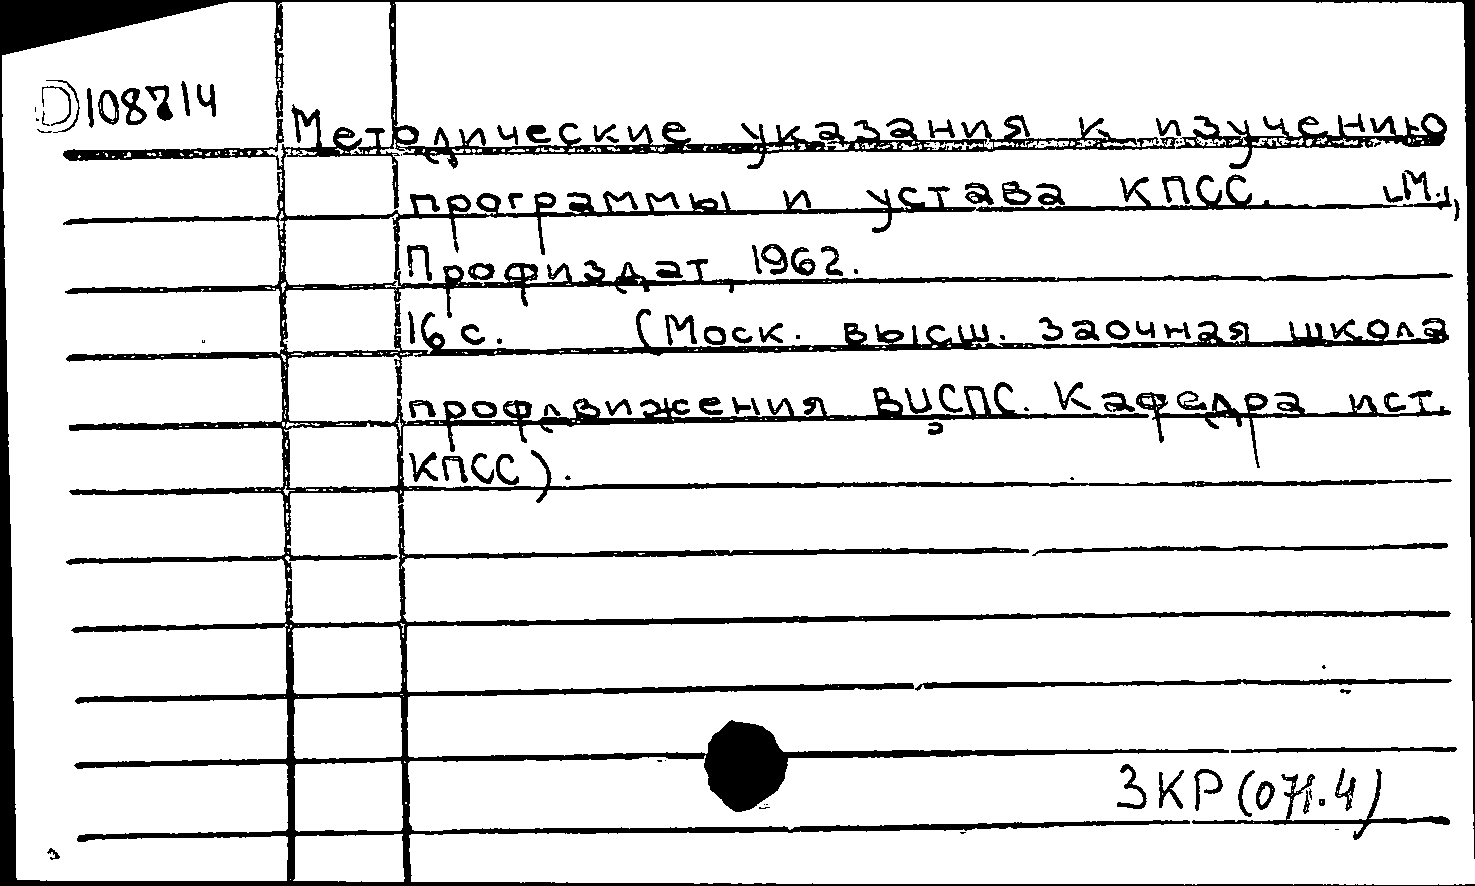 D108714
Методические указания к изучению
программы и устава КПСС. [М.],
Профиздат, 1962.
16 с. (Моск. высш. заочная школа
профдвижения ВЦСПС. Кафедра ист.
КПСС).
3КР(071.4)